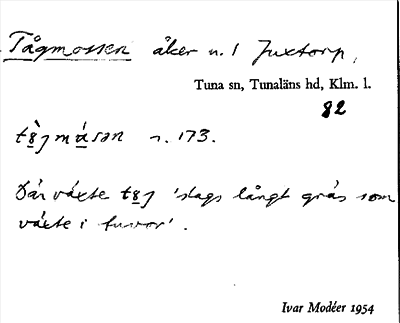 Tågmossen åker n. 1 Juxtorp,
Tuna sn, Tunaläns hd, Klm. l.
82
s. 173.
Där växte 'slags långt gräs som
växte i tuvor'.
Ivar Modéer 1954